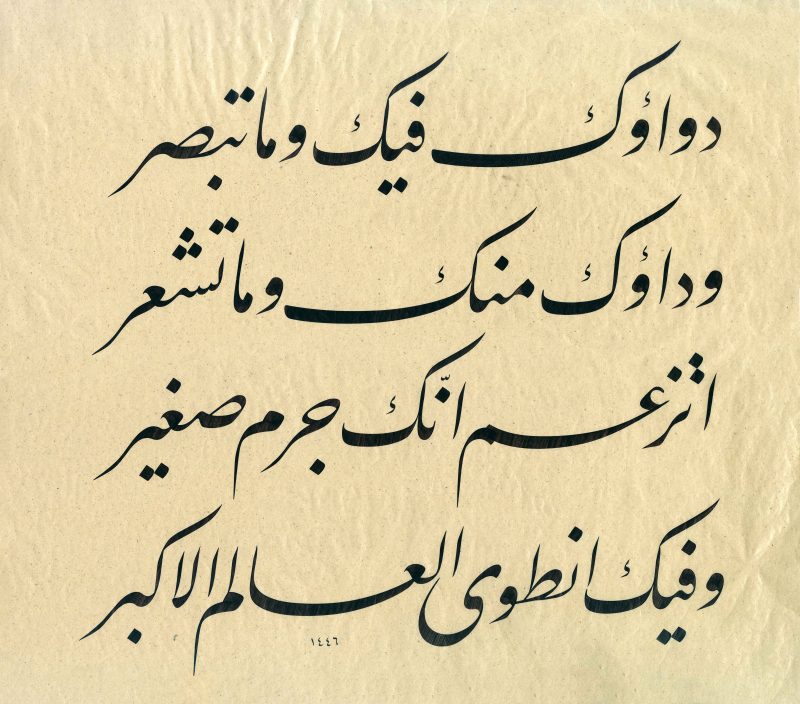 دواؤك فيك وما تبصر
وداؤك منك وما تشعر
اتزعم انّك جرم صغير
وفيك انطوى العالم الاكبر
١٤٤٦